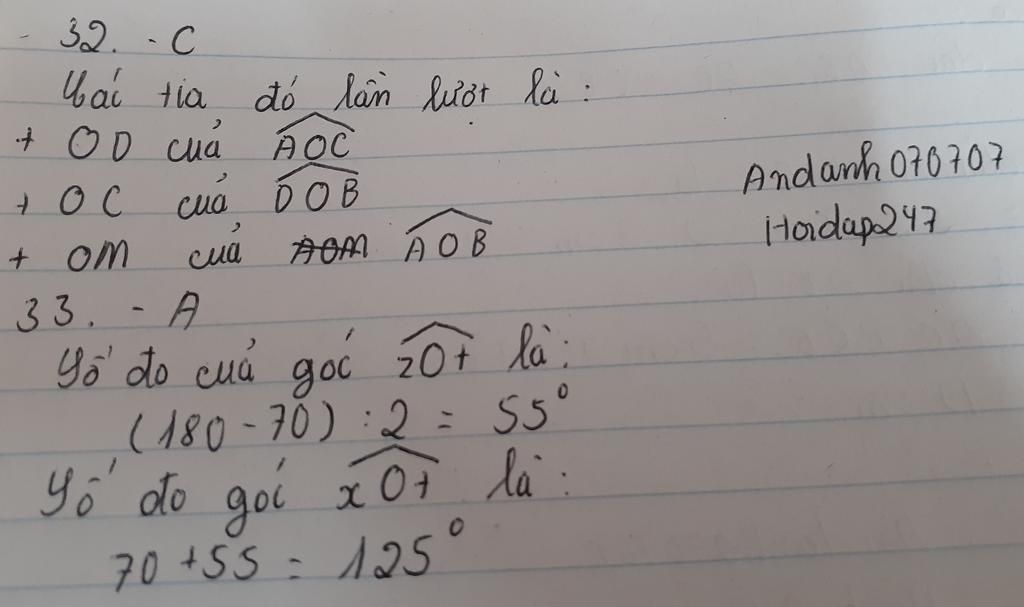 - 32. - C
Các tia đó lần lượt là :
+ OD của AOC
+ OC của DOB
+ OM của AOM AOB
Andanh070707
Hoidap247
33. - A
Số đo của góc zOt là :
(180 - 70) : 2 = 55°
Số đo góc xOt là :
70 + 55 = 125°